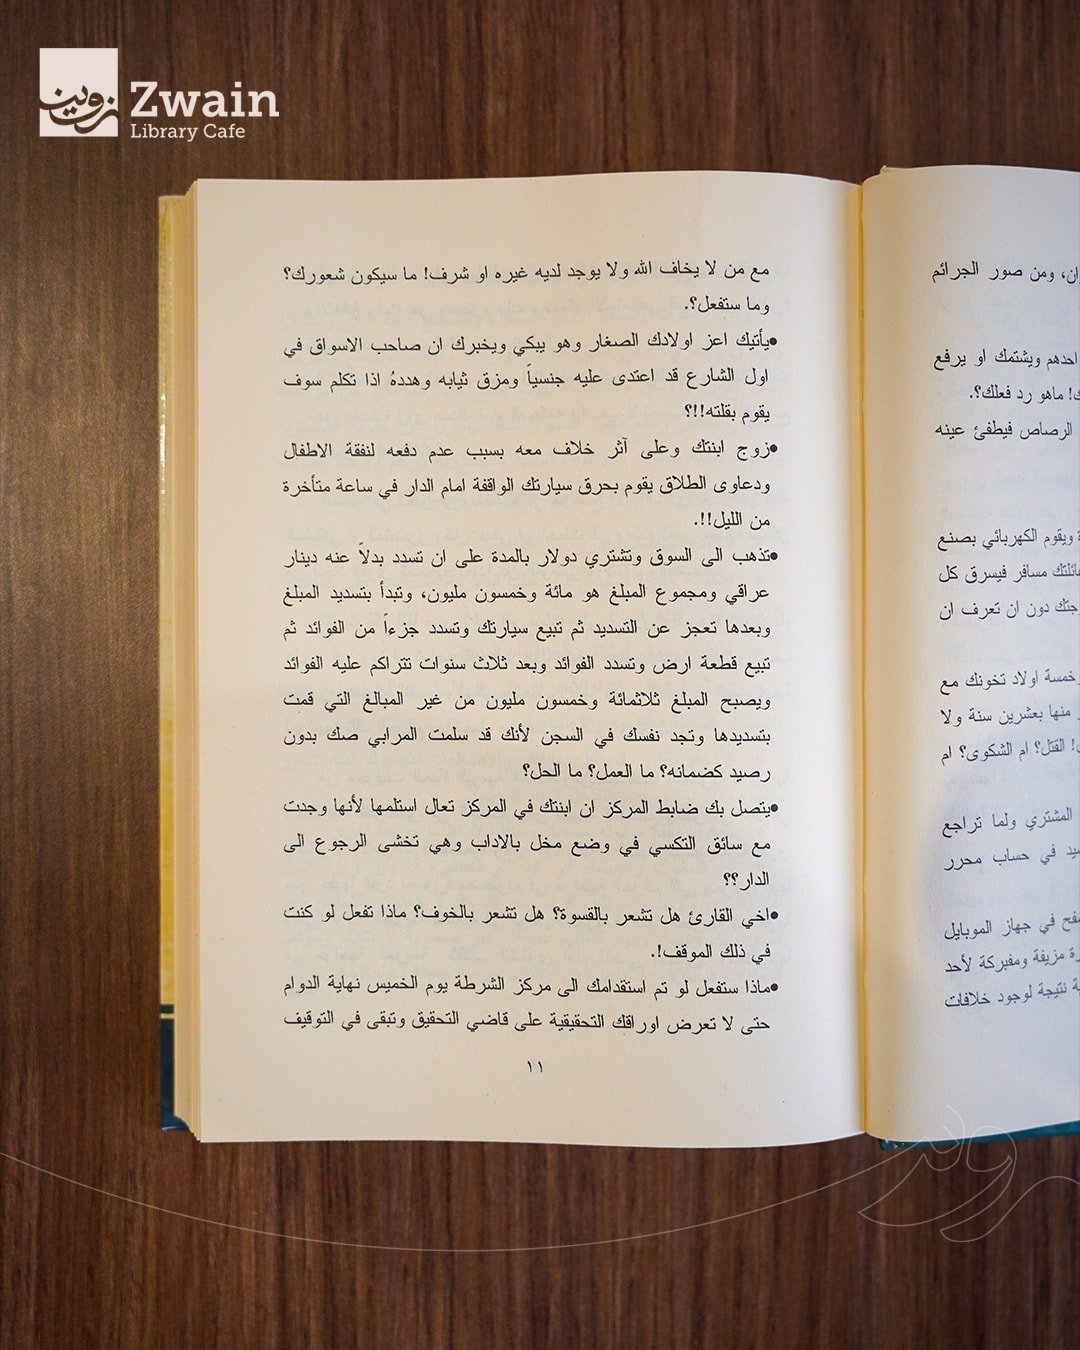 زوين
Zwain
Library Cafe
ان، ومن صور الجرائم
احدهم ويشتمك او يرفع
ك! ماهو رد فعلك؟.
الرصاص فيطفئ عينه
ة ويقوم الكهربائي بصنع
مسافر فيسرق كل
دون ان تعرف ان
وخمسة اولاد تخونك مع
منها بعشرين سنة ولا
القتل؟ ام الشكوى؟ ام
المشتري ولما تراجع
في حساب محرر
في جهاز الموبايل
مزيفة ومفبركة لأحد
نتيجة لوجود خلافات
مع من لا يخاف الله ولا يوجد لديه غيره او شرف! ما سيكون شعورك؟
وما ستفعل؟.
•يأتيك اعز اولادك الصغار وهو يبكي ويخبرك ان صاحب الاسواق في
اول الشارع قد اعتدى عليه جنسياً ومزق ثيابه وهددهُ اذا تكلم سوف
يقوم بقلته!!؟
•زوج ابنتك وعلى آثر خلاف معه بسبب عدم دفعه لنفقة الاطفال
ودعاوى الطلاق يقوم بحرق سيارتك الواقفة امام الدار في ساعة متأخرة
من الليل!!.
•تذهب الى السوق وتشتري دولار بالمدة على ان تسدد بدلاً عنه دينار
عراقي ومجموع المبلغ هو مائة وخمسون مليون، وتبدأ بتسديد المبلغ
وبعدها تعجز عن التسديد ثم تبيع سيارتك وتسدد جزءاً من الفوائد ثم
تبيع قطعة ارض وتسدد الفوائد وبعد ثلاث سنوات تتراكم عليه الفوائد
ويصبح المبلغ ثلاثمائة وخمسون مليون من غير المبالغ التي قمت
بتسديدها وتجد نفسك في السجن لأنك قد سلمت المرابي صك بدون
رصيد كضمانه؟ ما العمل؟ ما الحل؟
•يتصل بك ضابط المركز ان ابنتك في المركز تعال استلمها لأنها وجدت
مع سائق التكسي في وضع مخل بالاداب وهي تخشى الرجوع الى
الدار؟؟
•اخي القارئ هل تشعر بالقسوة؟ هل تشعر بالخوف؟ ماذا تفعل لو كنت
في ذلك الموقف!.
•ماذا ستفعل لو تم استقدامك الى مركز الشرطة يوم الخميس نهاية الدوام
حتى لا تعرض اوراقك التحقيقية على قاضي التحقيق وتبقى في التوقيف
١١
زوين